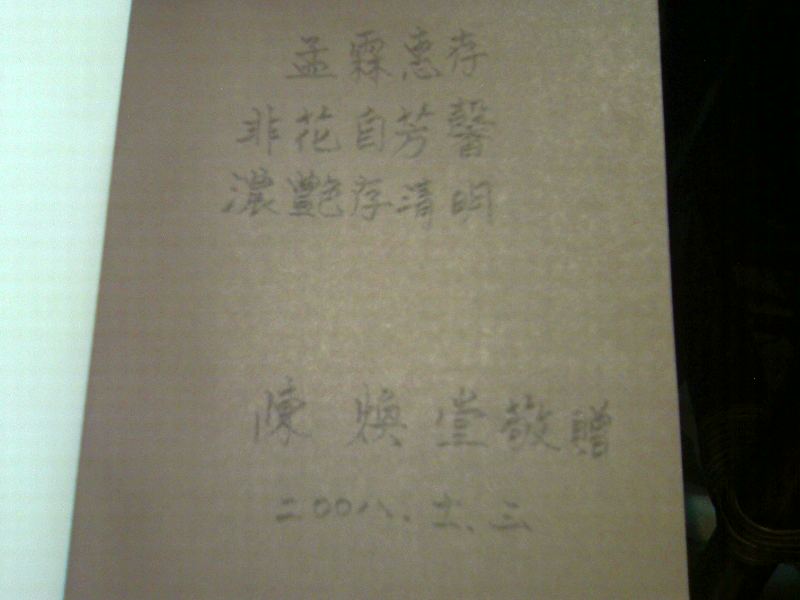 孟霖惠存
非花自芳馨
濃艷存清明
陳煥堂敬贈
二〇〇八、十一、三